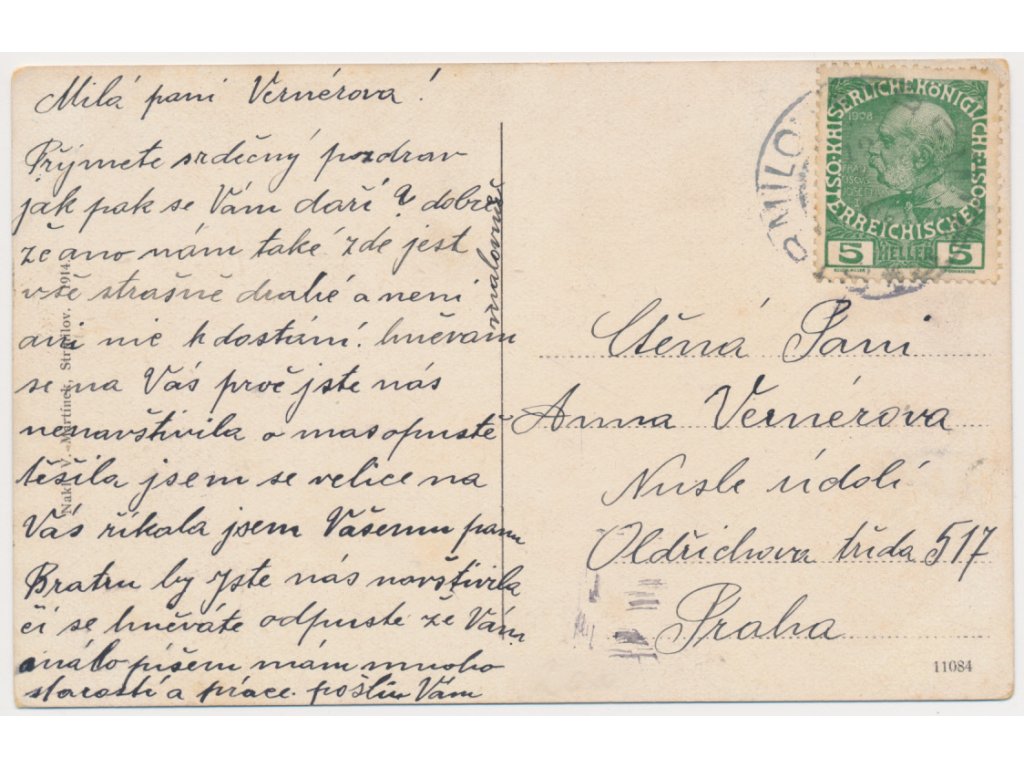 Milá paní Vernérova!
Přijmete srdečný pozdrav
jak pak se Vám daří? dobře
že ano nám také zde jest
vše strašně drahé a není
ani nic k dostání. hněvám
se na Vás proč jste nás
nenavštivila o masopustě
těšila jsem se velice na
Vás říkala jsem Vašemu panu
Bratru by jste nás navštívila
či se hněváte odpuste že Vám
málo píšem mám mnoho
starostí a práce pošlu Vám
Nakl. V. Martínek, Strmilov. 1914.
STRMILOV
OSTR. KAISERLICHE KÖNIGLICHE
ÖSTERREICHISCHE POST
1908
5 HELLER 5
Ctěná Paní
Anna Vernérova
Nusle údolí
Oldřichova třída 517
Praha
11084